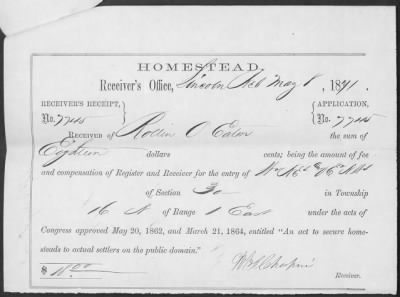 HOMESTEAD.
Receiver's Office, Lincoln Neb May 8, 1871.
RECEIVER'S RECEIPT, APPLICATION,
No. 7745 No. 7745
RECEIVED OF Rollin O Eaton the sum of
Eighteen dollars cents; being the amount of fee
and compensation of Register and Receiver for the entry of
of Section 30 in Township
16 N of Range 1 East under the acts of
Congress approved May 20, 1862, and March 21, 1864, entitled "An act to secure home-
steads to actual settlers on the public domain."
$ 18.00
Receiver.